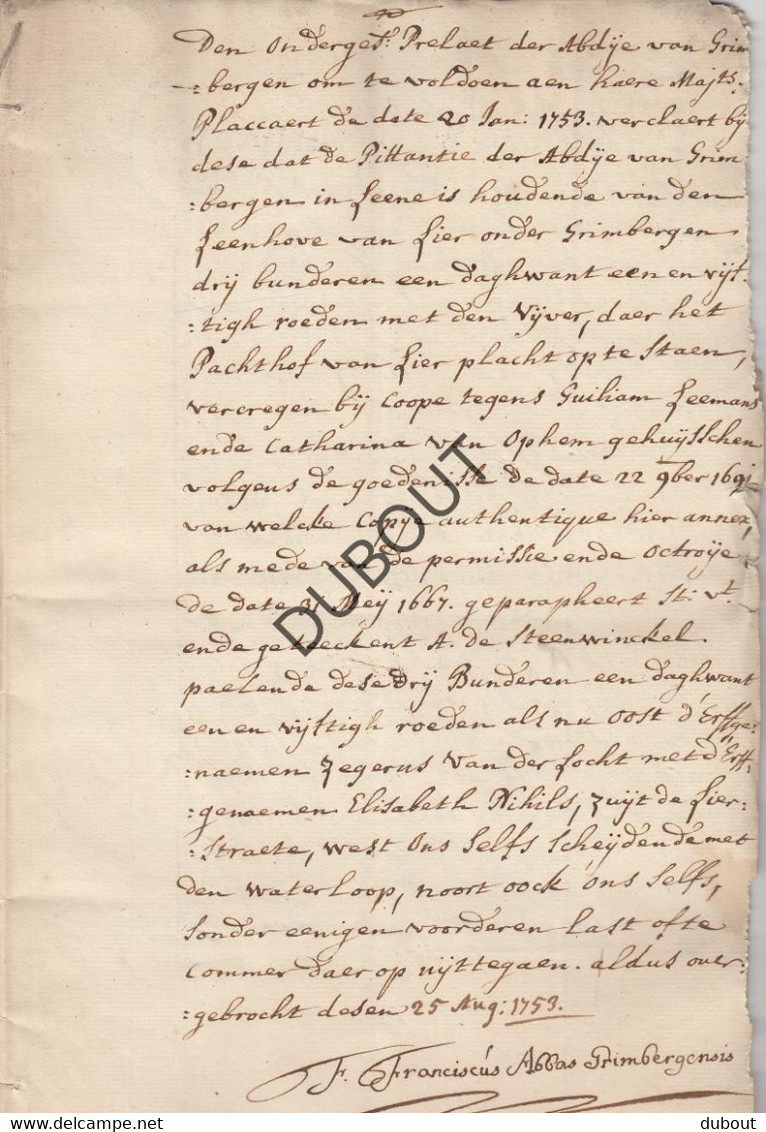 Den Onderget: Prelaet der Abdÿe van Grim
=:bergen om te voldoen aen haere Majts.
Placcaert de date 20 Jan: 1753. verclaert bÿ
dese dat de Pittantie der Abdÿe van Grim
=:bergen in Leene is houdende van den
Leenhove van Lier onder Grimbergen
drij bunderen een daghwant een en vijf-
=:tigh roeden met den Vijver, daer het
Pachthof van Lier placht op te Staen,
vercregen bij Coope tegens Guiliam Leemans
ende Catharina van Ophem gehuÿsschen
volgens de goedenisse de date 22 9ber 1691
van welcke Copÿe authentique hier annex,
als mede van de permissie ende Octroÿe
de date 31 Meÿ 1667. geparapheert St: vt.
ende geteeckent A. de Steenwinckel.
paelende dese Drÿ Bunderen een daghwant
een en vijftigh roeden als nu Oost d'Erffge=
=:naemen Zegerus Van der Locht met d'Erff=
=:genaemen Elisabeth Nihils, Zuÿt de Lier=
=:Straete, west Ons Selfs Scheÿdende met
den Waterloop, noort oock ons Selfs,
Sonder eenigen voorderen Last ofte
Commer daer op uÿttegaen. aldus over=
=:gebrocht desen 25 Aug: 1753.
F. Franciscus Abbas Grimbergensis
DUBOUT
www.delcampe.net
dubout